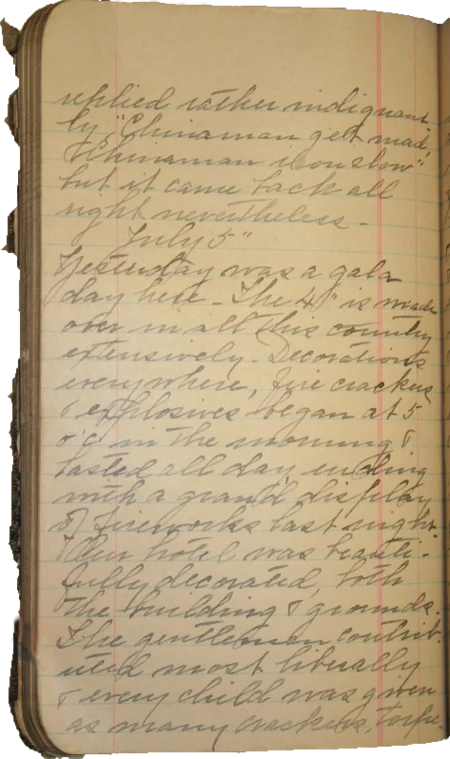 replied rather indignant-
ly, "Chinaman get mad,
Chinaman iron slow"
but it came back all
right nevertheless -
July 5"
Yesterday was a gala
day here - The 4" is made
over in all this country
extensively - Decorations
everywhere, fire crackers
& explosives began at 5
o'c in the morning &
lasted all day ending
with a grand display
of fireworks last night.
Our hotel was beauti-
fully decorated, both
the building & grounds.
The gentlemen contrib-
uted most liberally
& every child was given
as many crackers, torpe